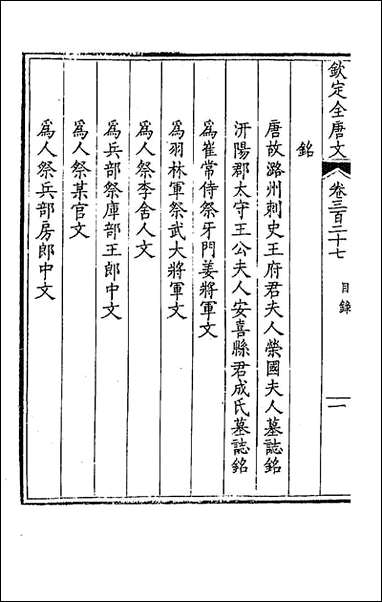 欽定全唐文 卷三百二十七 目錄 一
銘
唐故潞州刺史王府君夫人榮國夫人墓誌銘
汧陽郡太守王公夫人安喜縣君成氏墓誌銘
爲崔常侍祭牙門姜將軍文
爲羽林軍祭武大將軍文
爲人祭李舍人文
爲兵部祭庫部王郎中文
爲人祭某官文
爲人祭兵部房郎中文